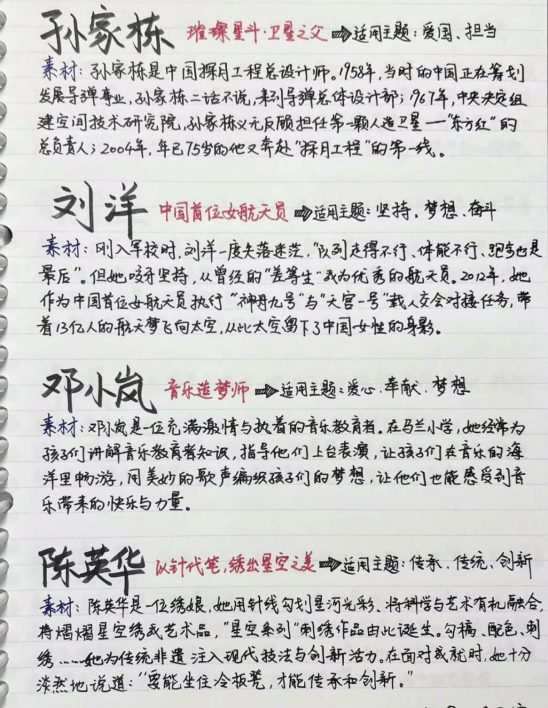 孙家栋 璀璨星斗·卫星之父 ➡适用主题：爱国、担当
素材：孙家栋是中国探月工程总设计师。1958年，当时的中国正在筹划
发展导弹事业，孙家栋二话不说，来到导弹总体设计部；1967年，中央决定组
建空间技术研究院，孙家栋义无反顾担任第一颗人造卫星——"东方红"的
总负责人；2004年，年已75岁的他又奔赴"探月工程"的第一线。
刘洋 中国首位女航天员 ➡适用主题：坚持、梦想、奋斗
素材：刚入军校时，刘洋一度失落迷茫，"队列走得不行、体能不行、跑步也是
最后"。但她咬牙坚持，从曾经的"差等生"成为优秀的航天员。2012年，她
作为中国首位女航天员执行"神舟九号"与"天宫一号"载人交会对接任务，带
着13亿人的航天梦飞向太空，从此太空留下了中国女性的身影。
邓小岚 音乐造梦师 ➡适用主题：爱心、奉献、梦想
素材：邓小岚是一位充满激情与执着的音乐教育者。在马兰小学，她经常为
孩子们讲解音乐教育者知识，指导他们上台表演，让孩子们在音乐的海
洋里畅游，用美妙的歌声编织孩子们的梦想，让他们也能感受到音
乐带来的快乐与力量。
陈英华 以针代笔，绣出星空之美 ➡适用主题：传承、传统、创新
素材：陈英华是一位绣娘，她用针线勾划星河光彩、将科学与艺术有机融合，
将熠熠星空绣成艺术品，"星空系列"刺绣作品由此诞生。勾稿、配色、刺
绣……她为传统非遗注入现代技法与创新活力。在面对成就时，她十分
淡然地说道："要能坐住冷板凳，才能传承和创新。"